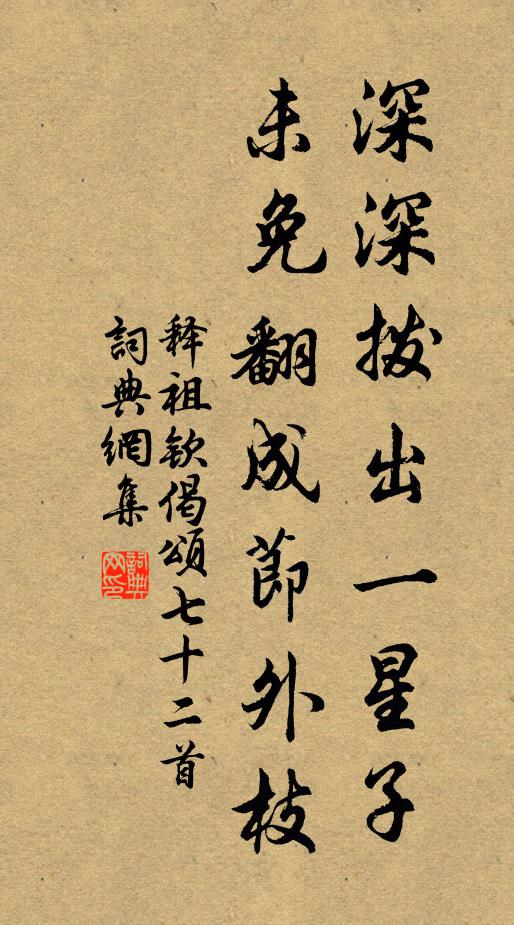 深深拨出一星子
未免翻成節外枝
释祖钦偈頌七十二首
詞典網集
詞典
网印